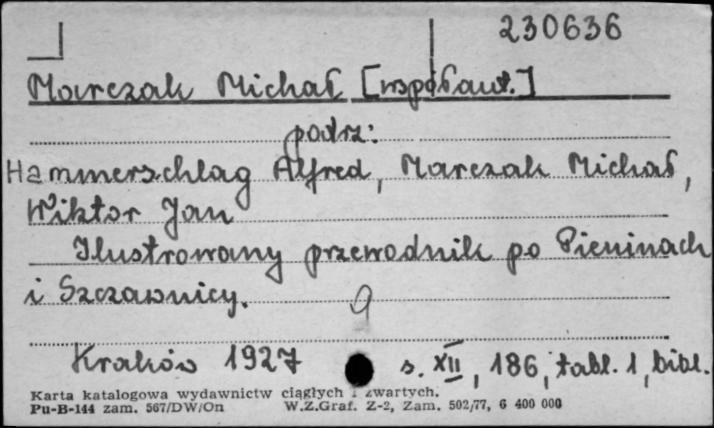 230636
Marczak Michał [współaut.]
podrz:
Hammerschlag Alfred, Marczak Michał,
Wiktor Jan
Ilustrowany przewodnik po Pieninach
i Szczawnicy.
Kraków 1927 s. XII, 186, tabl. 1, bibl.
Karta katalogowa wydawnictw ciągłych i zwartych.
Pu-B-144 zam. 567/DW/On W.Z.Graf. Z-2, Zam. 502/77, 6 400 000